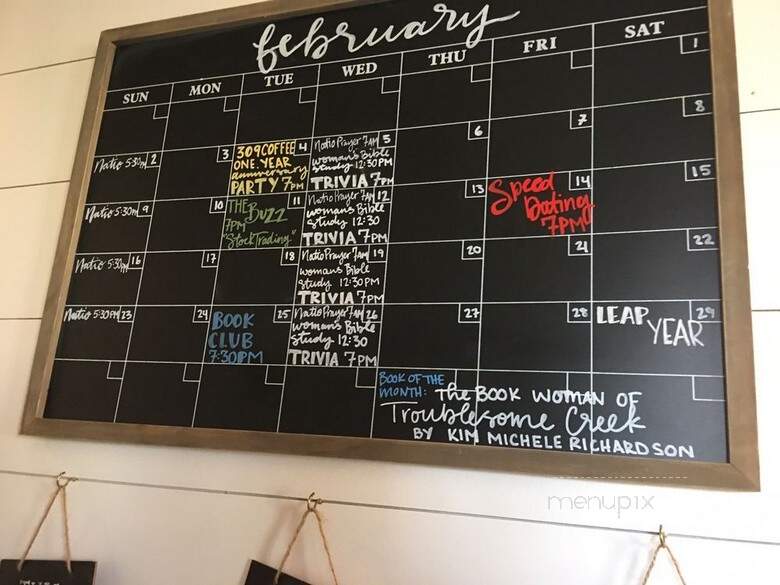 february
SUN MON TUE WED THU FRI SAT
1
Natio 5:30PM 2
3
309 COFFEE 4
ONE YEAR
anniversary
PARTY 7PM
Natio Prayer 7AM 5
woman's Bible
study 12:30PM
TRIVIA 7PM
6
7
8
Natio 5:30M 9
10
THE BUZZ 11
7PM
"Stock Trading"
Natio Prayer 7AM 12
womans Bible
study 12:30
TRIVIA 7PM
13
Speed 14
Dating
7PM
15
Natio 5:30PM 16
17
18
Natio Prayer 7AM 19
womans Bible
study 12:30PM
TRIVIA 7PM
20
21
22
Natio 5:30PM 23
24
BOOK 25
CLUB
7:30PM
Natio Prayer 7AM 26
woman's Bible
study 12:30
TRIVIA 7PM
27
28
LEAP 29
YEAR
BOOK OF THE
MONTH: The BOOK WOMAN OF
Troublesome Creek
BY KIM MICHELE RICHARDSON
menupix